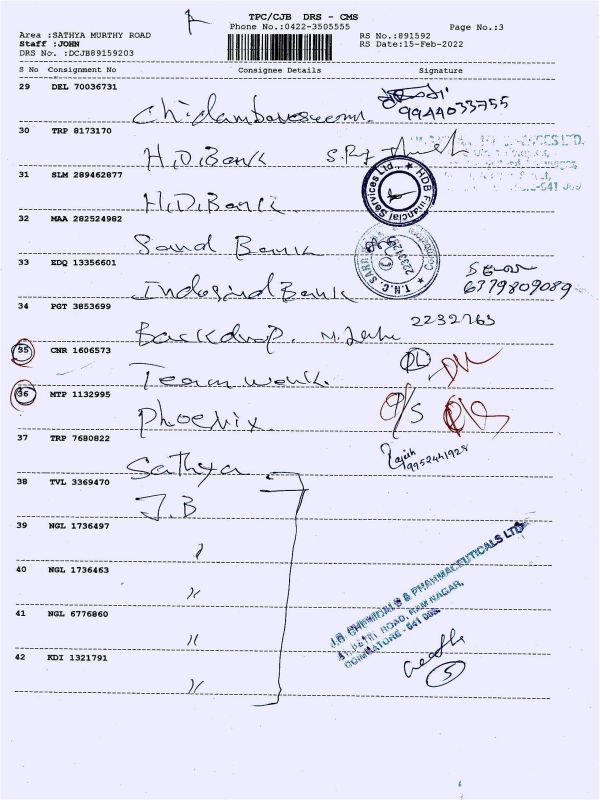 TPC/CJB DRS - CMS
Phone No.:0422-3505555
Page No.:3
Area :SATHYA MURTHY ROAD
RS No.:891592
Staff :JOHN
RS Date:15-Feb-2022
DRS No. :DCJB89159203
S No Consignment No Consignee Details Signature
29 DEL 70036731
9944033755
30 TRP 8173170
H.D.Bank
31 SLM 289462877
H.D.Bank
HDB Financial Services Ltd.,
32 MAA 282524982
Sand Bank
33 EDQ 13356601
Indesind Bank
6379809089
34 PGT 3853699
Backdrop.
2232763
35 CNR 1606573
Team work.
36 MTP 1132995
Phoenix
37 TRP 7680822
Sathya
9952441928
38 TVL 3369470
J.B
39 NGL 1736497
40 NGL 1736463
41 NGL 6776860
42 KDI 1321791
J.B. CHEMICALS & PHARMACEUTICALS LTD
ROAD, RAM NAGAR,
COIMBATORE - 641 009.
5